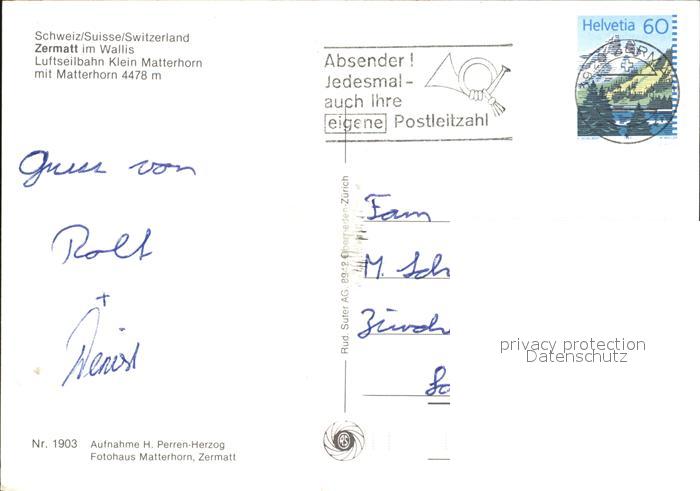 Schweiz/Suisse/Switzerland
Zermatt im Wallis
Luftseilbahn Klein Matterhorn
mit Matterhorn 4478 m
Absender!
Jedesmal-
auch Ihre
eigene Postleitzahl
Helvetia 60
Gruss von
Rolf
+
Denise
Fam
M. Sch
Zürch
Rud. Suter AG, 8942 Oberrieden-Zürich
privacy protection
Datenschutz
Nr. 1903 Aufnahme H. Perren-Herzog
Fotohaus Matterhorn, Zermatt